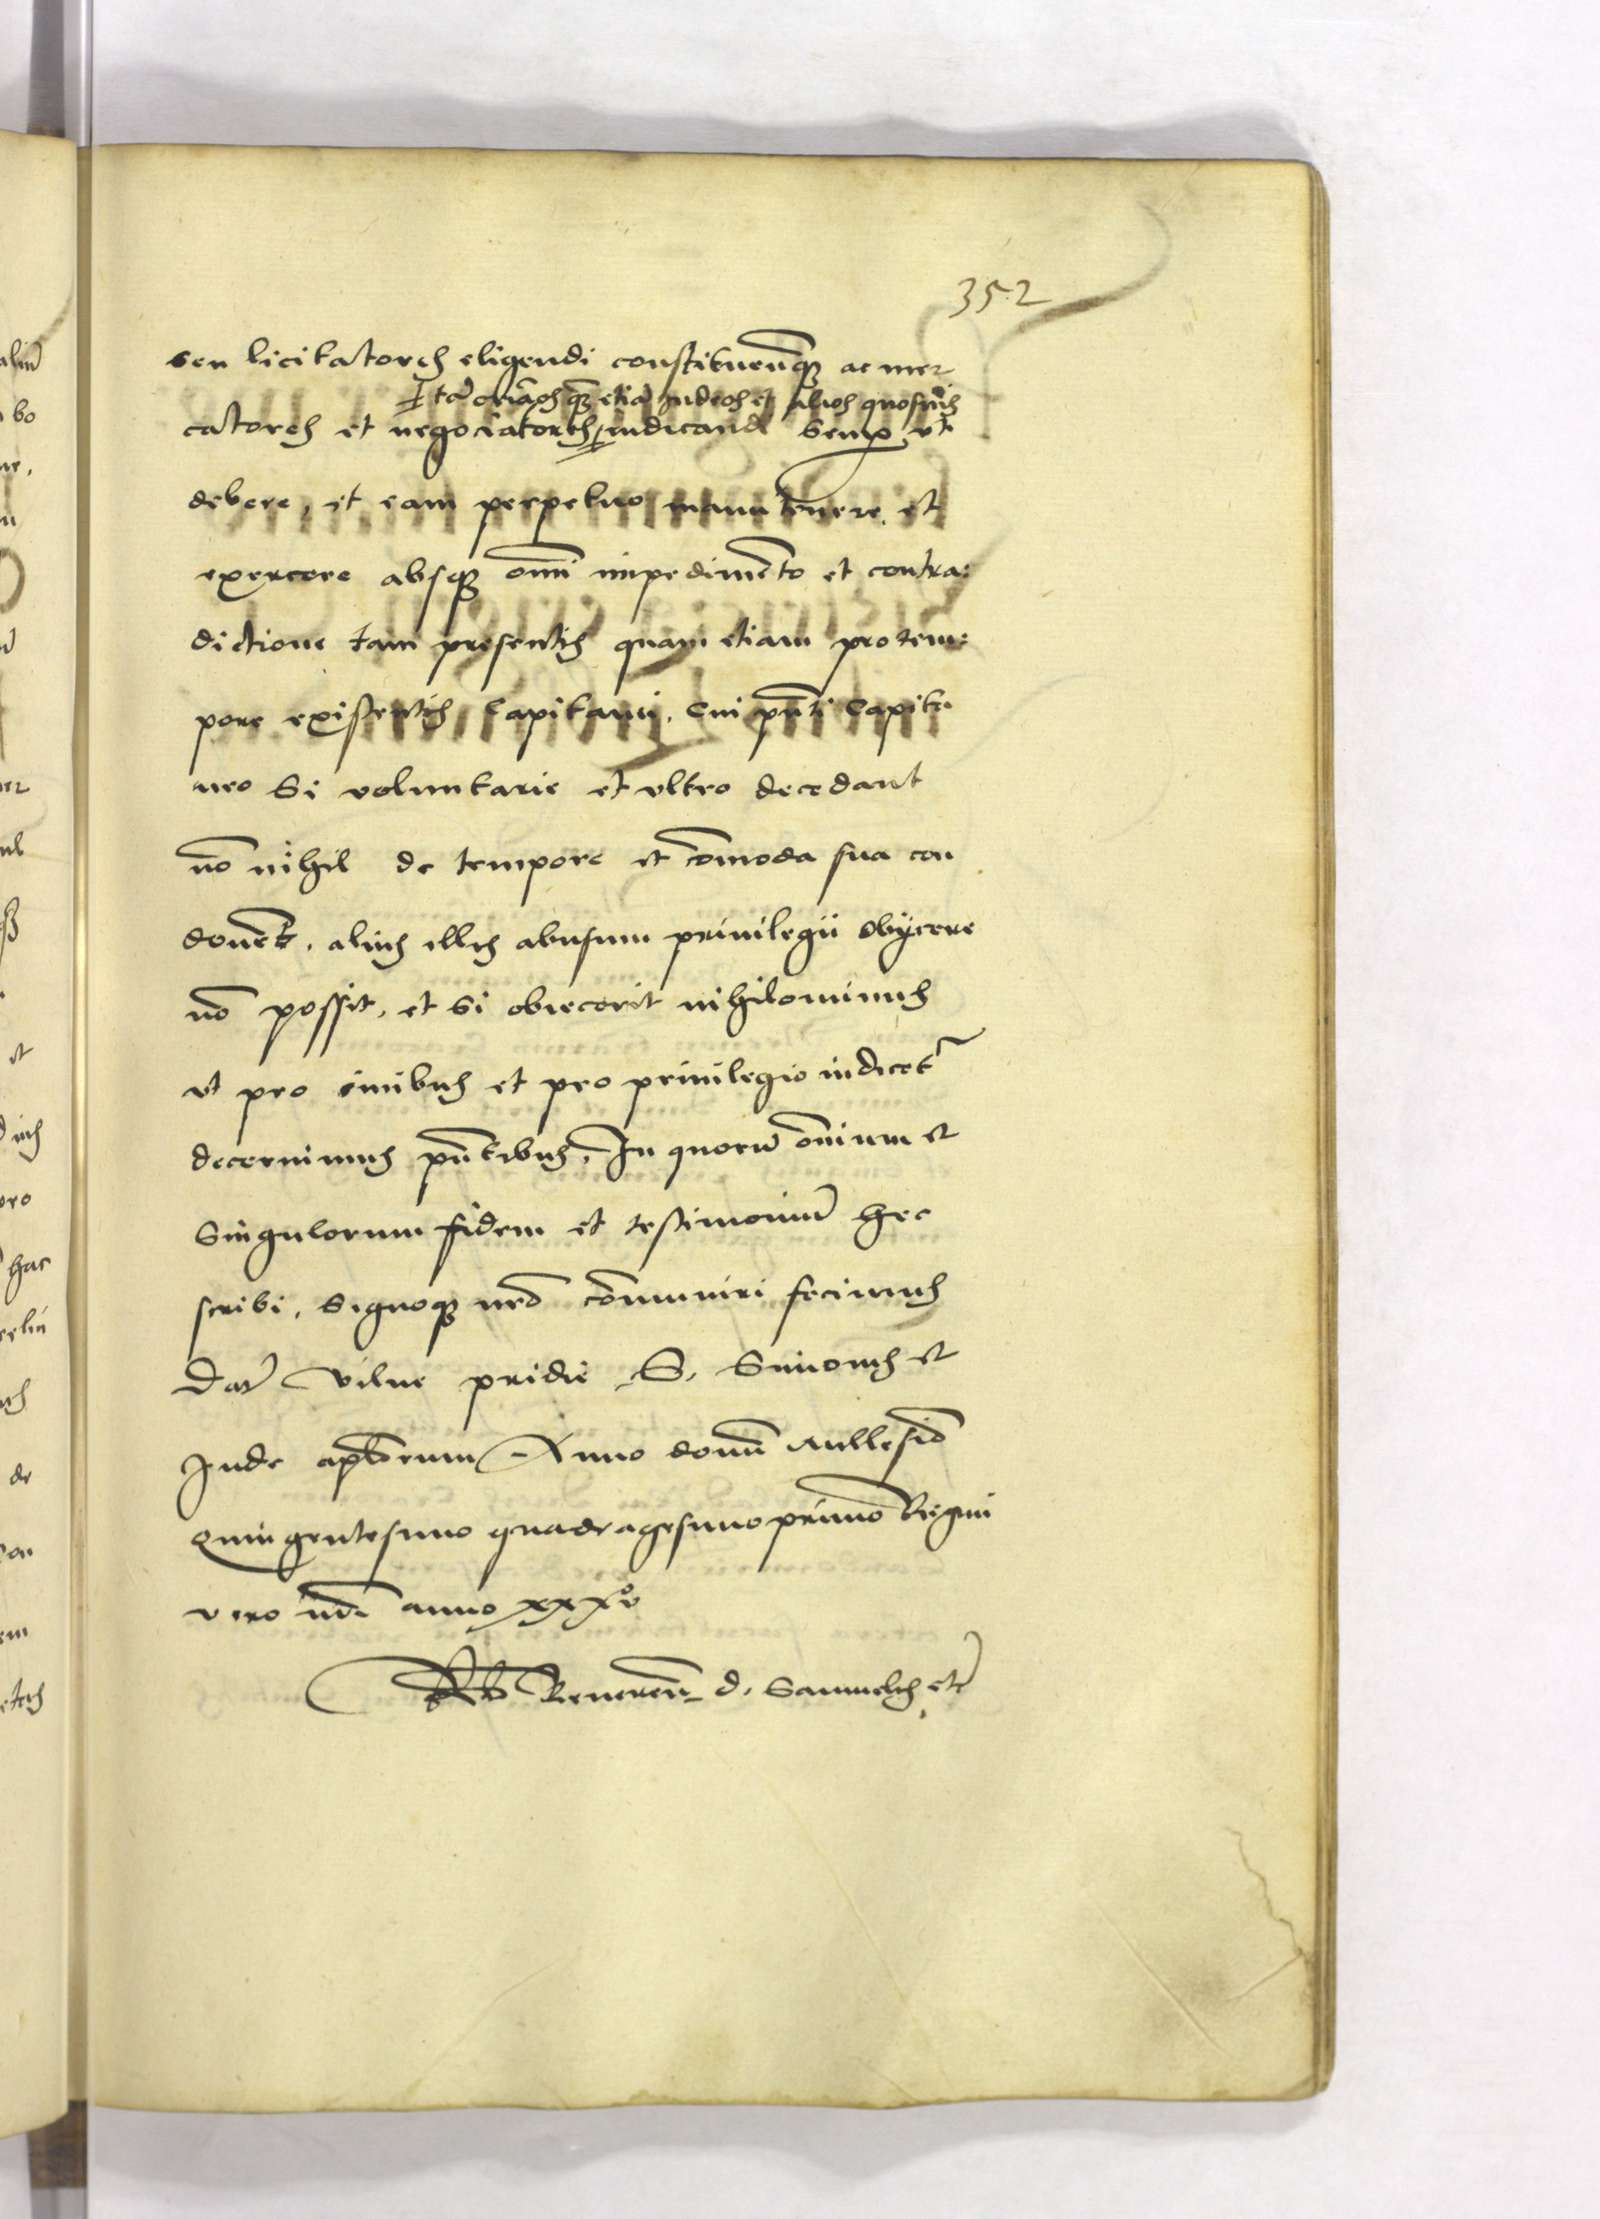 352
seu licitatores eligendi constituendiq̃ȝ ac mer
tã xr̃ianos q̃ȝ etiã Iudeos et alios quosuis
catores et negociatores iudicandi semp vti
debere, et eam perpetuo manutenere et
exercere absqȝ om̃i impedimẽto et contra:
dictione tam presentis quam etiam pro tem:
pore existentis Capitanei, Cui pñti Capita
neo si voluntarie et vltro decedant
nõ nihil de tempore et cõmoda sua con
donẽt, alius illis abusum priuilegii obÿcere
nõ possit, et si obiecerit nihilominus
vt pro ciuibus et pro priuilegio iudicet̃
decernimus pñtibus, In quorũ om̃ium et
singulorum fidem et testimoniũ hec
scribi, signoqȝ nr̃o cõmuniri fecimus
Dat̃ Vilne pridie S. Simonis et
Jude apl̃orum Anno domĩ Millesiõ
Quingentesimo quadragesimo primo Regni
vero nr̃i anno xxxv
Ad Reueren̄ d. Samuelis etc̃